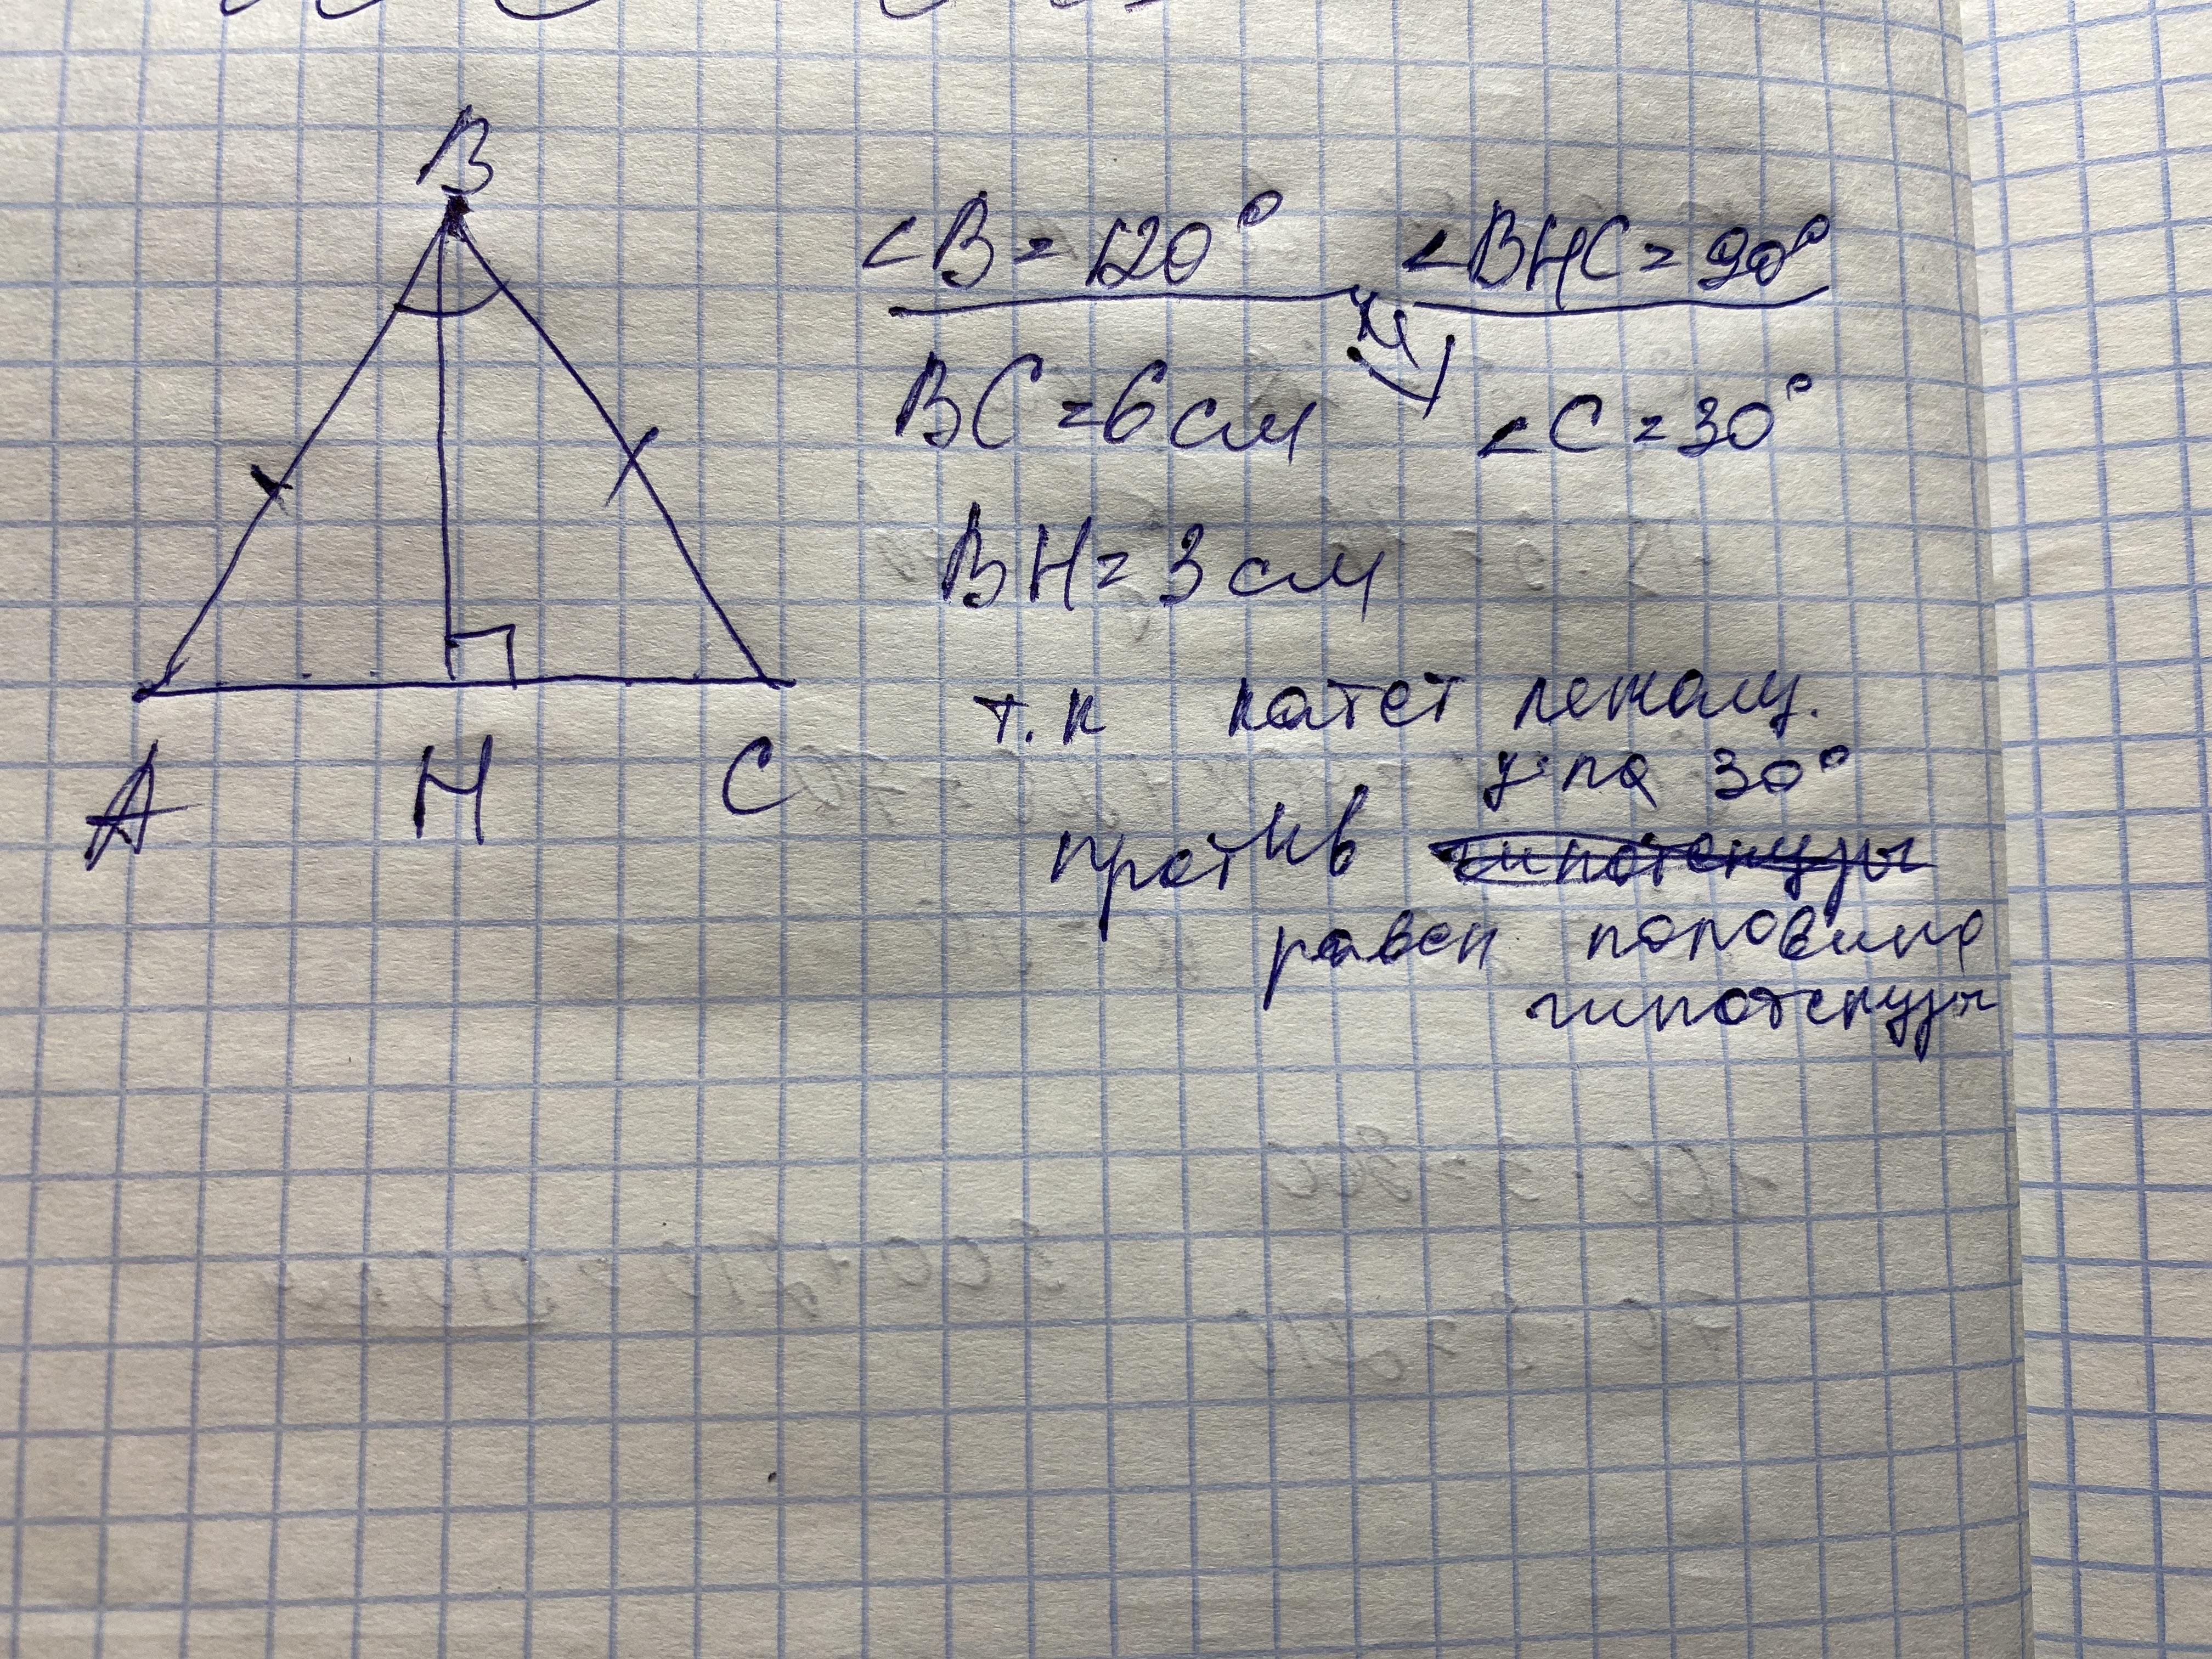 B
A H C
∠B = 120° ∠BHC = 90°
BC = 6 см ∠C = 30°
BH = 3 см
т.к катет лежащ.
угла 30°
против
равен половине
гипотенузы